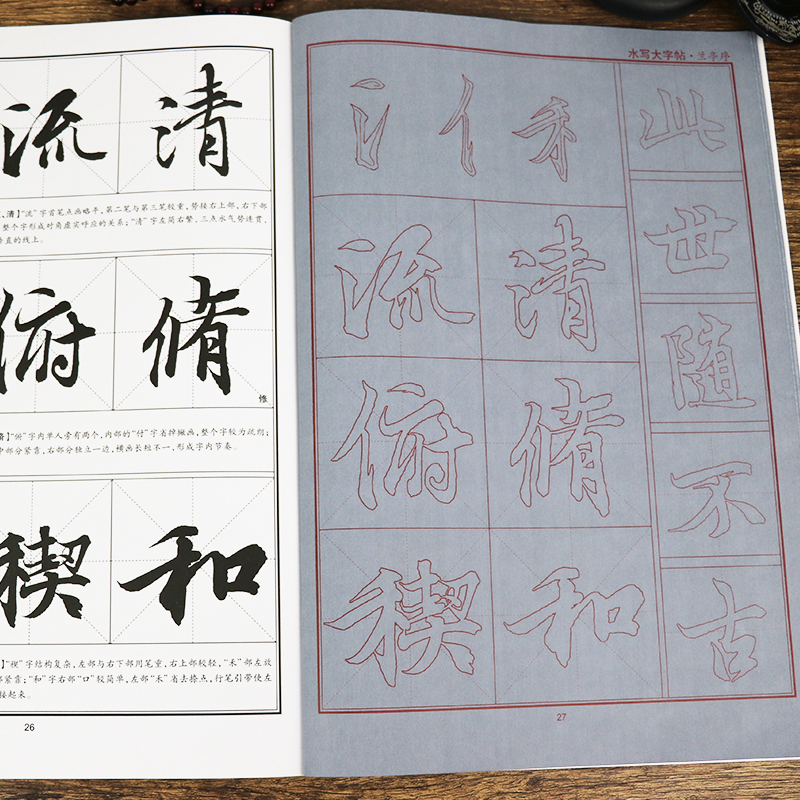 流 清
、清】“流”字首笔点画略平,第二笔与第三笔较重,势接右上部,右下部
整个字形成对角虚实呼应的关系;“清”字左简右繁,三点水气势连贯,
垂直的线上。
俯 脩
】“俯”字内单人旁有两个,内部的“付”字省掉撇画,整个字较为疏朗;
部分紧靠,右部分独立一边,横画长短不一,形成字内节奏。
稧 和
】“稧”字结构复杂,左部与右下部用笔重,右上部较轻,“禾”部左放
部紧靠;“和”字右部“口”较简单,左部“禾”省去捺点,行笔引带使左
接起来。
26
水写大字帖·兰亭序
氵 亻 禾
流 清
俯 脩
稧 和
此
世
随
不
古
27